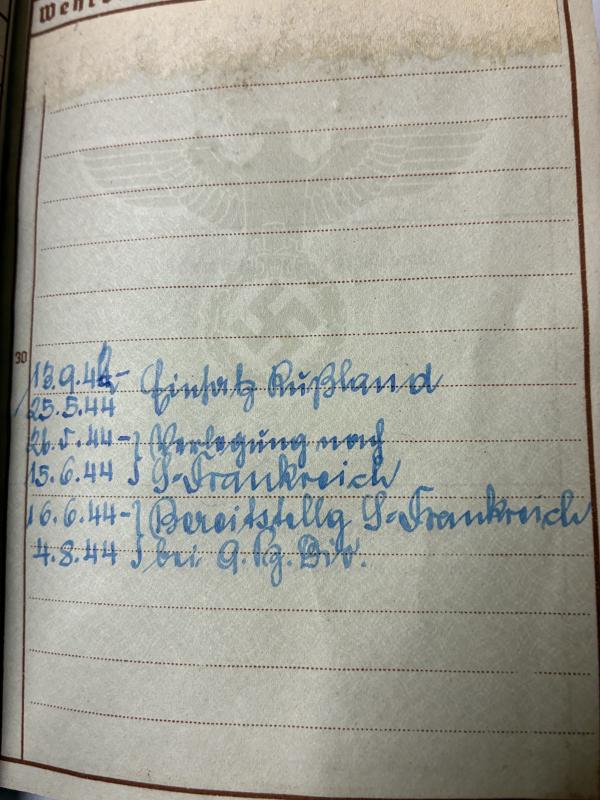 30
13.9.42- Einsatz Rußland
25.5.44
26.5.44-} Verlegung nach
15.6.44 } S-Frankreich
16.6.44-} Bereitstellg S-Frankreich
4.8.44 } bei 9. Pz. Div.